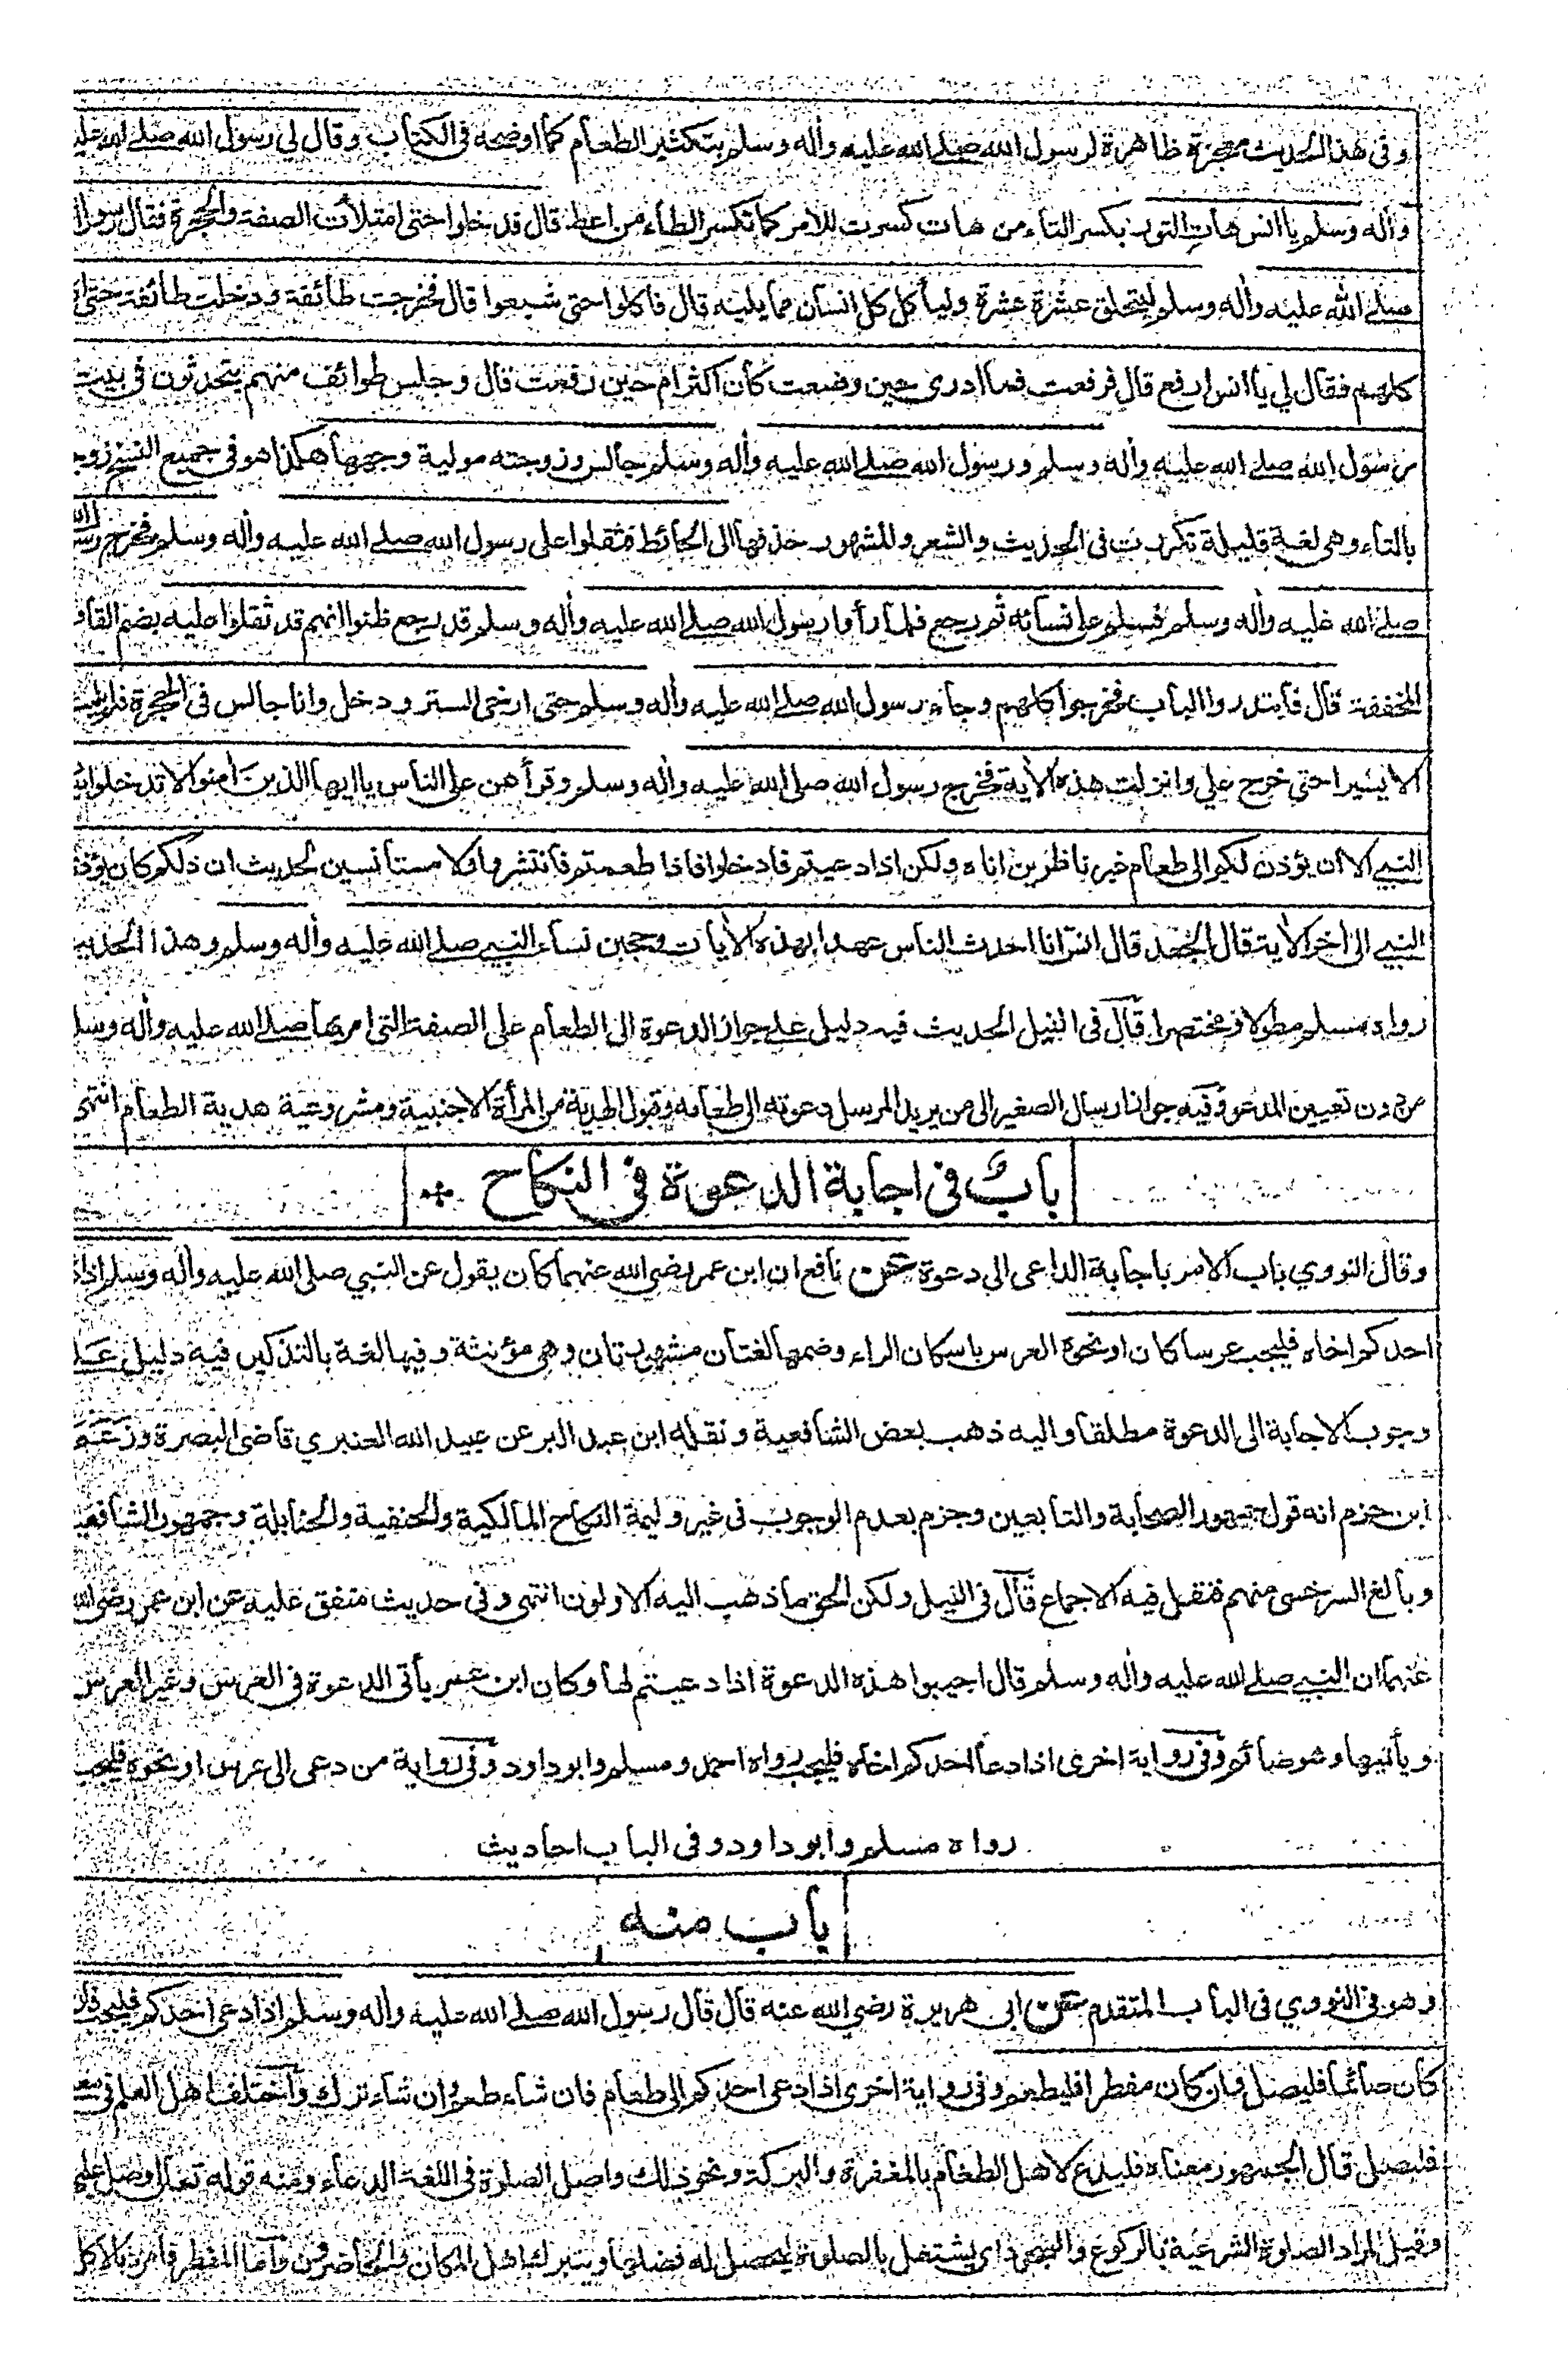 وفي هذا الحديث معجزة ظاهرة لرسول الله صلى الله عليه وأله وسلم بتكثير الطعام كما اوضحه في الكتاب وقال لي رسول الله صلى الله عليه
وأله وسلم يا انس هات التور بكسر التاء من هات كسرت للامر كما تكسر الطاء من اعط قال فدخلوا حتى امتلأت الصفة والحجرة فقال رسول الله
صلى الله عليه وأله وسلم ليتحلق عشرة عشرة وليأكل كل انسان مما يليه قال فاكلوا حتى شبعوا قال فخرجت طائفة ودخلت طائفة حتى
كلهم فقال لي يا انس ارفع قال فرفعت فما ادري حين وضعت كان اكثر ام حين رفعت قال وجلس طوائف منهم يتحدثون في بيت
رسول الله صلى الله عليه وأله وسلم ورسول الله صلى الله عليه وأله وسلم جالس وزوجته مولية وجهها هكذا هو في جميع النسخ زوجته
بالتاء وهي لغة قليلة تكررت في الحديث والشعر والمشهور حذفها الى الحائط فثقلوا على رسول الله صلى الله عليه وأله وسلم فخرج رسول الله
صلى الله عليه وأله وسلم فسلم على نسائه ثم رجع فلما رأوا رسول الله صلى الله عليه وأله وسلم قد رجع ظنوا انهم قد ثقلوا عليه بضم القاف
المخففة قال فابتدروا الباب فخرجوا كلهم وجاء رسول الله صلى الله عليه وأله وسلم حتى ارخى الستر ودخل وانا جالس في الحجرة فلم يلبث
الا يسيرا حتى خرج علي وانزلت هذه الأية فخرج رسول الله صلى الله عليه وأله وسلم وقرأهن على الناس يا ايها الذين أمنوا لا تدخلوا
النبي الا ان يؤذن لكم الى طعام غير ناظرين اناه ولكن اذا دعيتم فادخلوا فاذا طعمتم فانتشروا ولا مستأنسين لحديث ان ذلكم كان يؤذي
النبي الى أخر الأية قال الجعد قال انس انا احدث الناس عهدا بهذه الأيات وحجبن نساء النبي صلى الله عليه وأله وسلم وهذا الحديث
رواه مسلم مطولا ومختصرا قال في النيل الحديث فيه دليل على جواز الدعوة الى الطعام على الصفة التي امر بها صلى الله عليه وأله وسلم
من دون تعيين المدعو وفيه جواز ارسال الصغير الى من يريد المرسل دعوته الى طعامه وقبول الهدية من المرأة الاجنبية ومشروعية هدية الطعام انتهى
باب في اجابة الدعوة في النكاح
وقال النووي باب الامر باجابة الداعي الى دعوة عن نافع ان ابن عمر رضي الله عنهما كان يقول عن النبي صلى الله عليه وأله وسلم اذا دعا
احدكم اخاه فليجب عرسا كان او نحوه العرس باسكان الراء وضمها لغتان مشهورتان وهي مؤنثة وفيها لغة بالتذكير فيه دليل على
وجوب الاجابة الى الدعوة مطلقا واليه ذهب بعض الشافعية ونقله ابن عبد البر عن عبيد الله العنبري قاضي البصرة وزعم
ابن حزم انه قول جمهور الصحابة والتابعين وجزم بعدم الوجوب في غير وليمة النكاح المالكية والحنفية والحنابلة وجمهور الشافعية
وبالغ السرخسي منهم فنقل فيه الاجماع قال في النيل ولكن الحق ما ذهب اليه الاولون انتهى وفي حديث متفق عليه عن ابن عمر رضي الله
عنهما ان النبي صلى الله عليه وأله وسلم قال اجيبوا هذه الدعوة اذا دعيتم لها وكان ابن عمر يأتي الدعوة في العرس وغير العرس
ويأتيها وهو صائم وفي رواية اخرى اذا دعا احدكم اخاه فليجب رواه احمد ومسلم وابو داود وفي رواية من دعي الى عرس او نحوه فليجب
رواه مسلم وابو داود وفي الباب احاديث
باب منه
وهو في النووي في الباب المتقدم عن ابي هريرة رضي الله عنه قال قال رسول الله صلى الله عليه وأله وسلم اذا دعي احدكم فليجب فان
كان صائما فليصل وان كان مفطرا فليطعم وفي رواية اخرى اذا دعي احدكم الى طعام فان شاء طعم وان شاء ترك واختلف اهل العلم في معنى
فليصل قال الجمهور معناه فليدع لاهل الطعام بالمغفرة والبركة ونحو ذلك واصل الصلوة في اللغة الدعاء ومنه قوله تعالى وصل عليهم
وقيل المراد الصلوة الشرعية بالركوع والسجود اي يشتغل بالصلوة ليحصل له فضلها ويتبرك اهل المكان والحاضرون واما المفطر فامره بالاكل